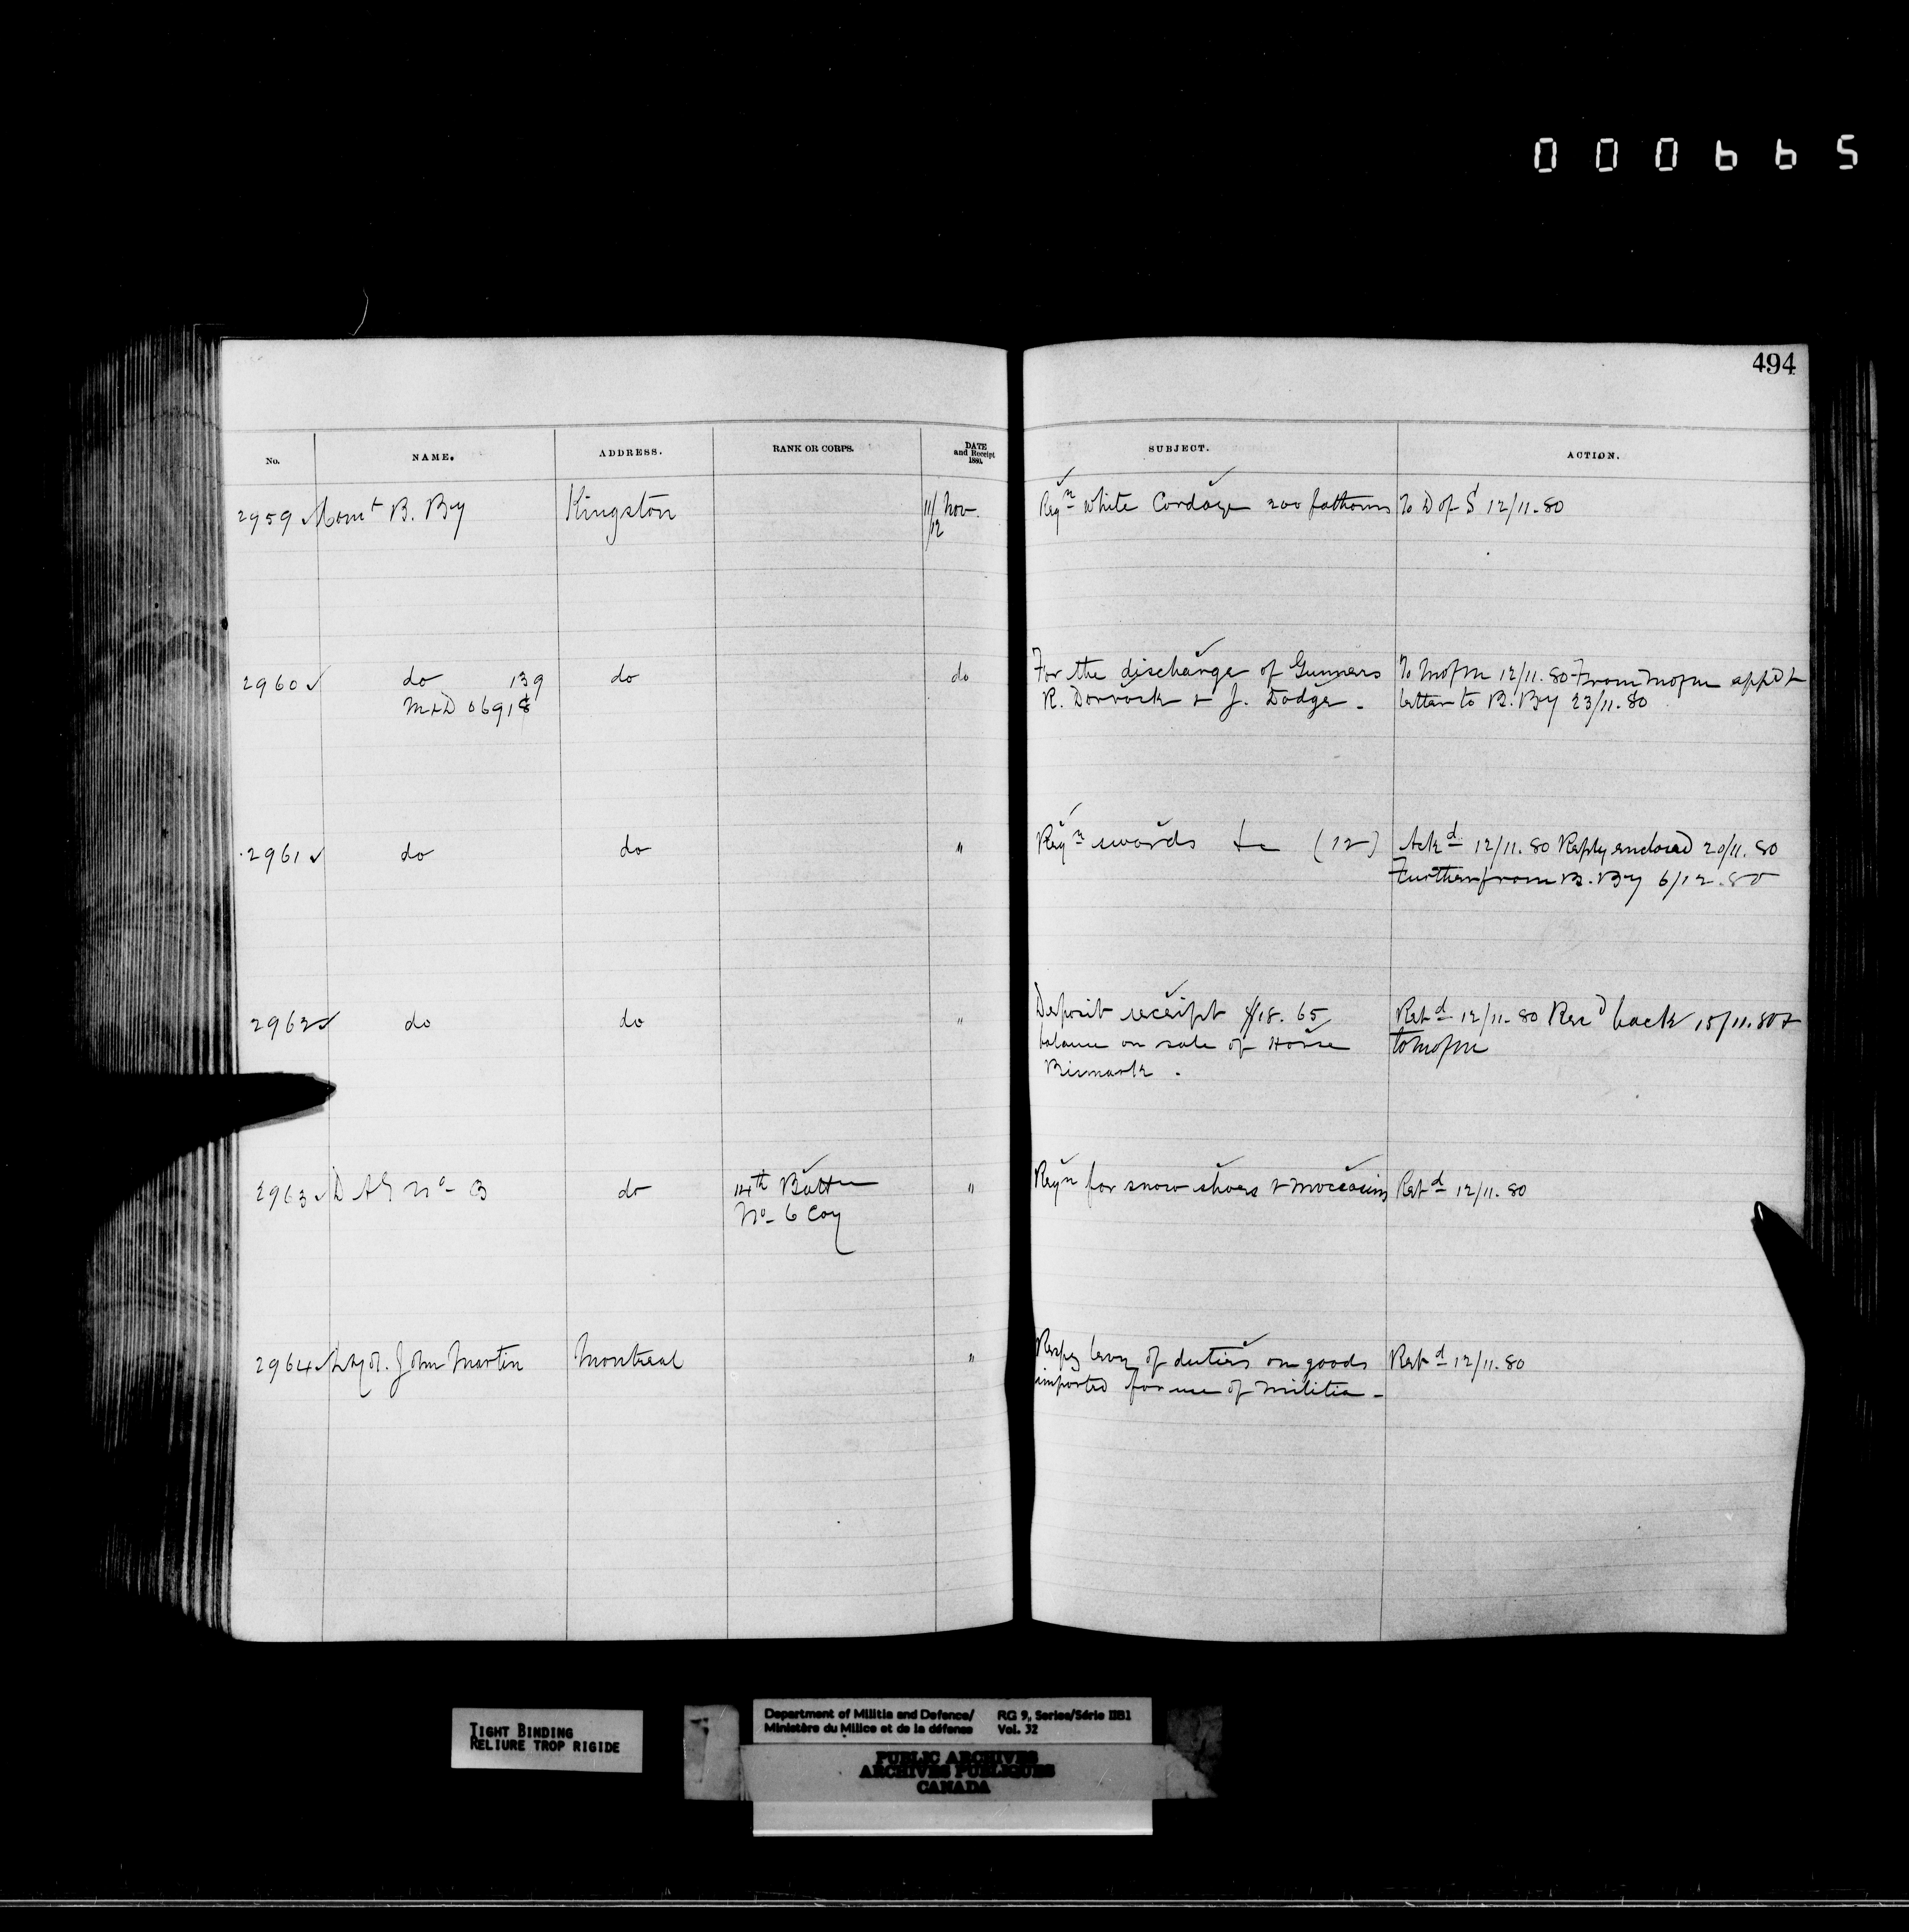 000665
494
No. NAME. ADDRESS. RANK OR CORPS. DATE and Receipt 1880. SUBJECT. ACTION.
2959 ✓ Comt B. By Kingston 11/12 Nov. Reqn White Cordage 200 fathoms To D of S 12/11.80
2960 ✓ do 139 do do For the discharge of Gunners To MofM 12/11.80 From MofM appd &
M&D 06918 R. Dorrock & J. Dodge - letter to B. By 23/11.80
2961 ✓ do do " Reqn swords &c (12) Ackd 12/11.80 Reply enclosed 20/11.80
Further from B. By 6/12.80
2962 ✓ do do " Deposit receipt $18.65 Retd 12/11.80 Recd back 15/11.80 &
balance on sale of Horse to MofM
Bismark .
2963 ✓ D A G No 3 do 14th Battn " Reqn for snow shoes & moccasins Retd 12/11.80
No 6 Coy
2964 ✓ John Martin Montreal " levy of duties on goods Retd 12/11.80
imported for use of Militia -
TIGHT BINDING
RELIURE TROP RIGIDE
Department of Militia and Defence/ RG 9, Series/Série IIB1
Ministère du Milice et de la défense Vol. 32
PUBLIC ARCHIVES
ARCHIVES PUBLIQUES
CANADA